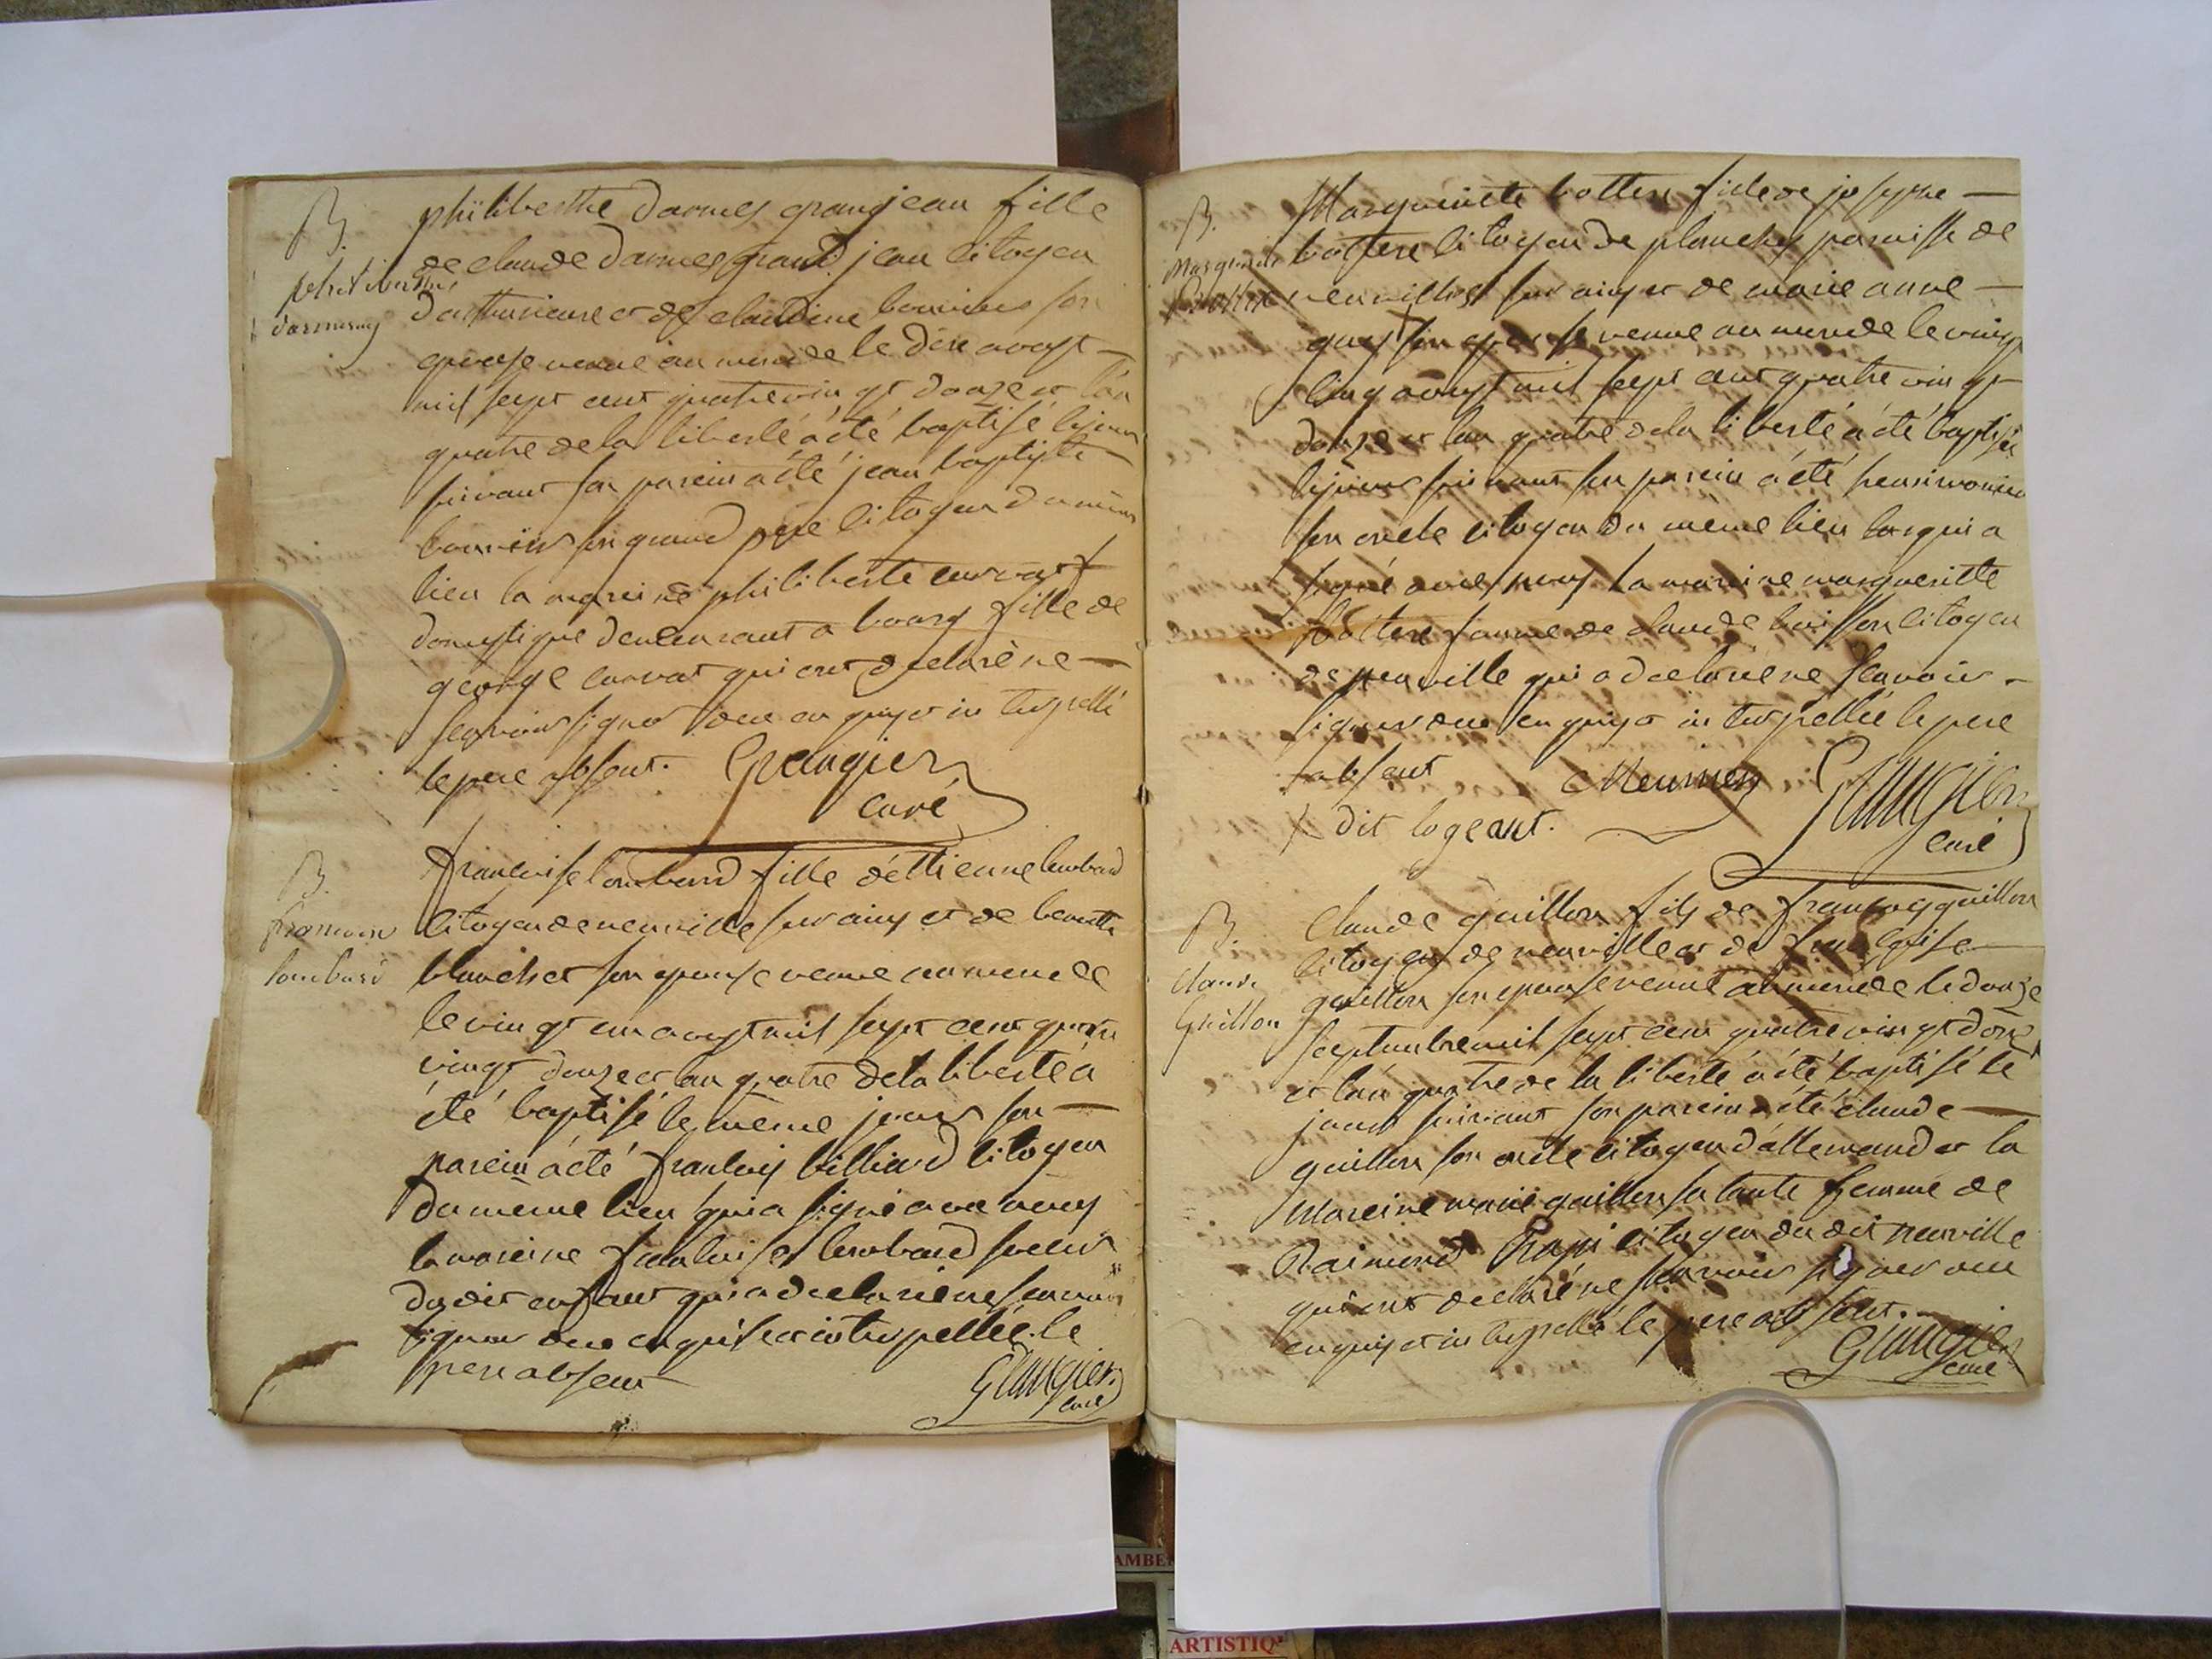 B.
philiberthe
darmesy
philiberthe darmes grang jean fille
de claude darmes grand jean citoyen
et de claudine bouvier son
epouse venue au monde le dixe avost
mil sept cent quatre vingt douze et l'an
quatre de la liberté a été baptisé le jour
suivant son parein a été jean baptiste
bouvier son grand pere citoyen du même
lieu la mareine philiberte curvat
domestique demeurant a bourg fille de
george curvat qui ont declaré ne
scavoir signer de ce enquis et interpellé
le pere absent. Grangier
curé
B.
francoise
lombard
francoise lombard fille d'éttienne lombard
citoyen de neuville sur ains et de benoitte
blanchet son epouse venue au monde
le vingt un avost mil sept cent quatre
vingt douze et l'an quatre de la liberté a
été baptisé le même jour son
parein a été francois billiard citoyen
du même lieu qui a signé avec nous
la mareine francoise lombard soeur
du dit enfant qui a declaré ne scavoir
signer de ce enquise et interpellée le
pere absent
Grangier
curé
B.
Marguerite
bottex
Marguerite bottex fille de josephe
bottex citoyen de planches paroisse de
neuville sur ains et de marie anne
son epouse venue au monde le vingt
cinq avost mil sept cent quatre vingt
douze et l'an quatre de la liberté a été baptisée
le jour suivant son parein a été
son oncle citoyen du même lieu lesqui a
signé avec nous la mareine margueritte
bottex femme de claude buisson citoyen
de neuville qui a declaré ne scavoir
signer de ce enquis et interpellée le pere
absent Meunier Grangier
X dit logeart. curé
B.
claude
Guillon
Claude guillon fils de francois guillon
citoyen de neuville et de francoise
guillon son epouse venue au monde le douze
septembre mil sept cent quatre vingt douze
et l'an quatre de la liberté a été baptisé le
jour suivant son parein a été claude
guillon son oncle citoyen d'allemand et la
Mareine marie guillon sa tante femme de
Raimond citoyen du dit neuville
qui ont declaré ne scavoir signer de ce
enquis et interpellé le pere absent.
Grangier
curé
ARTISTIQ